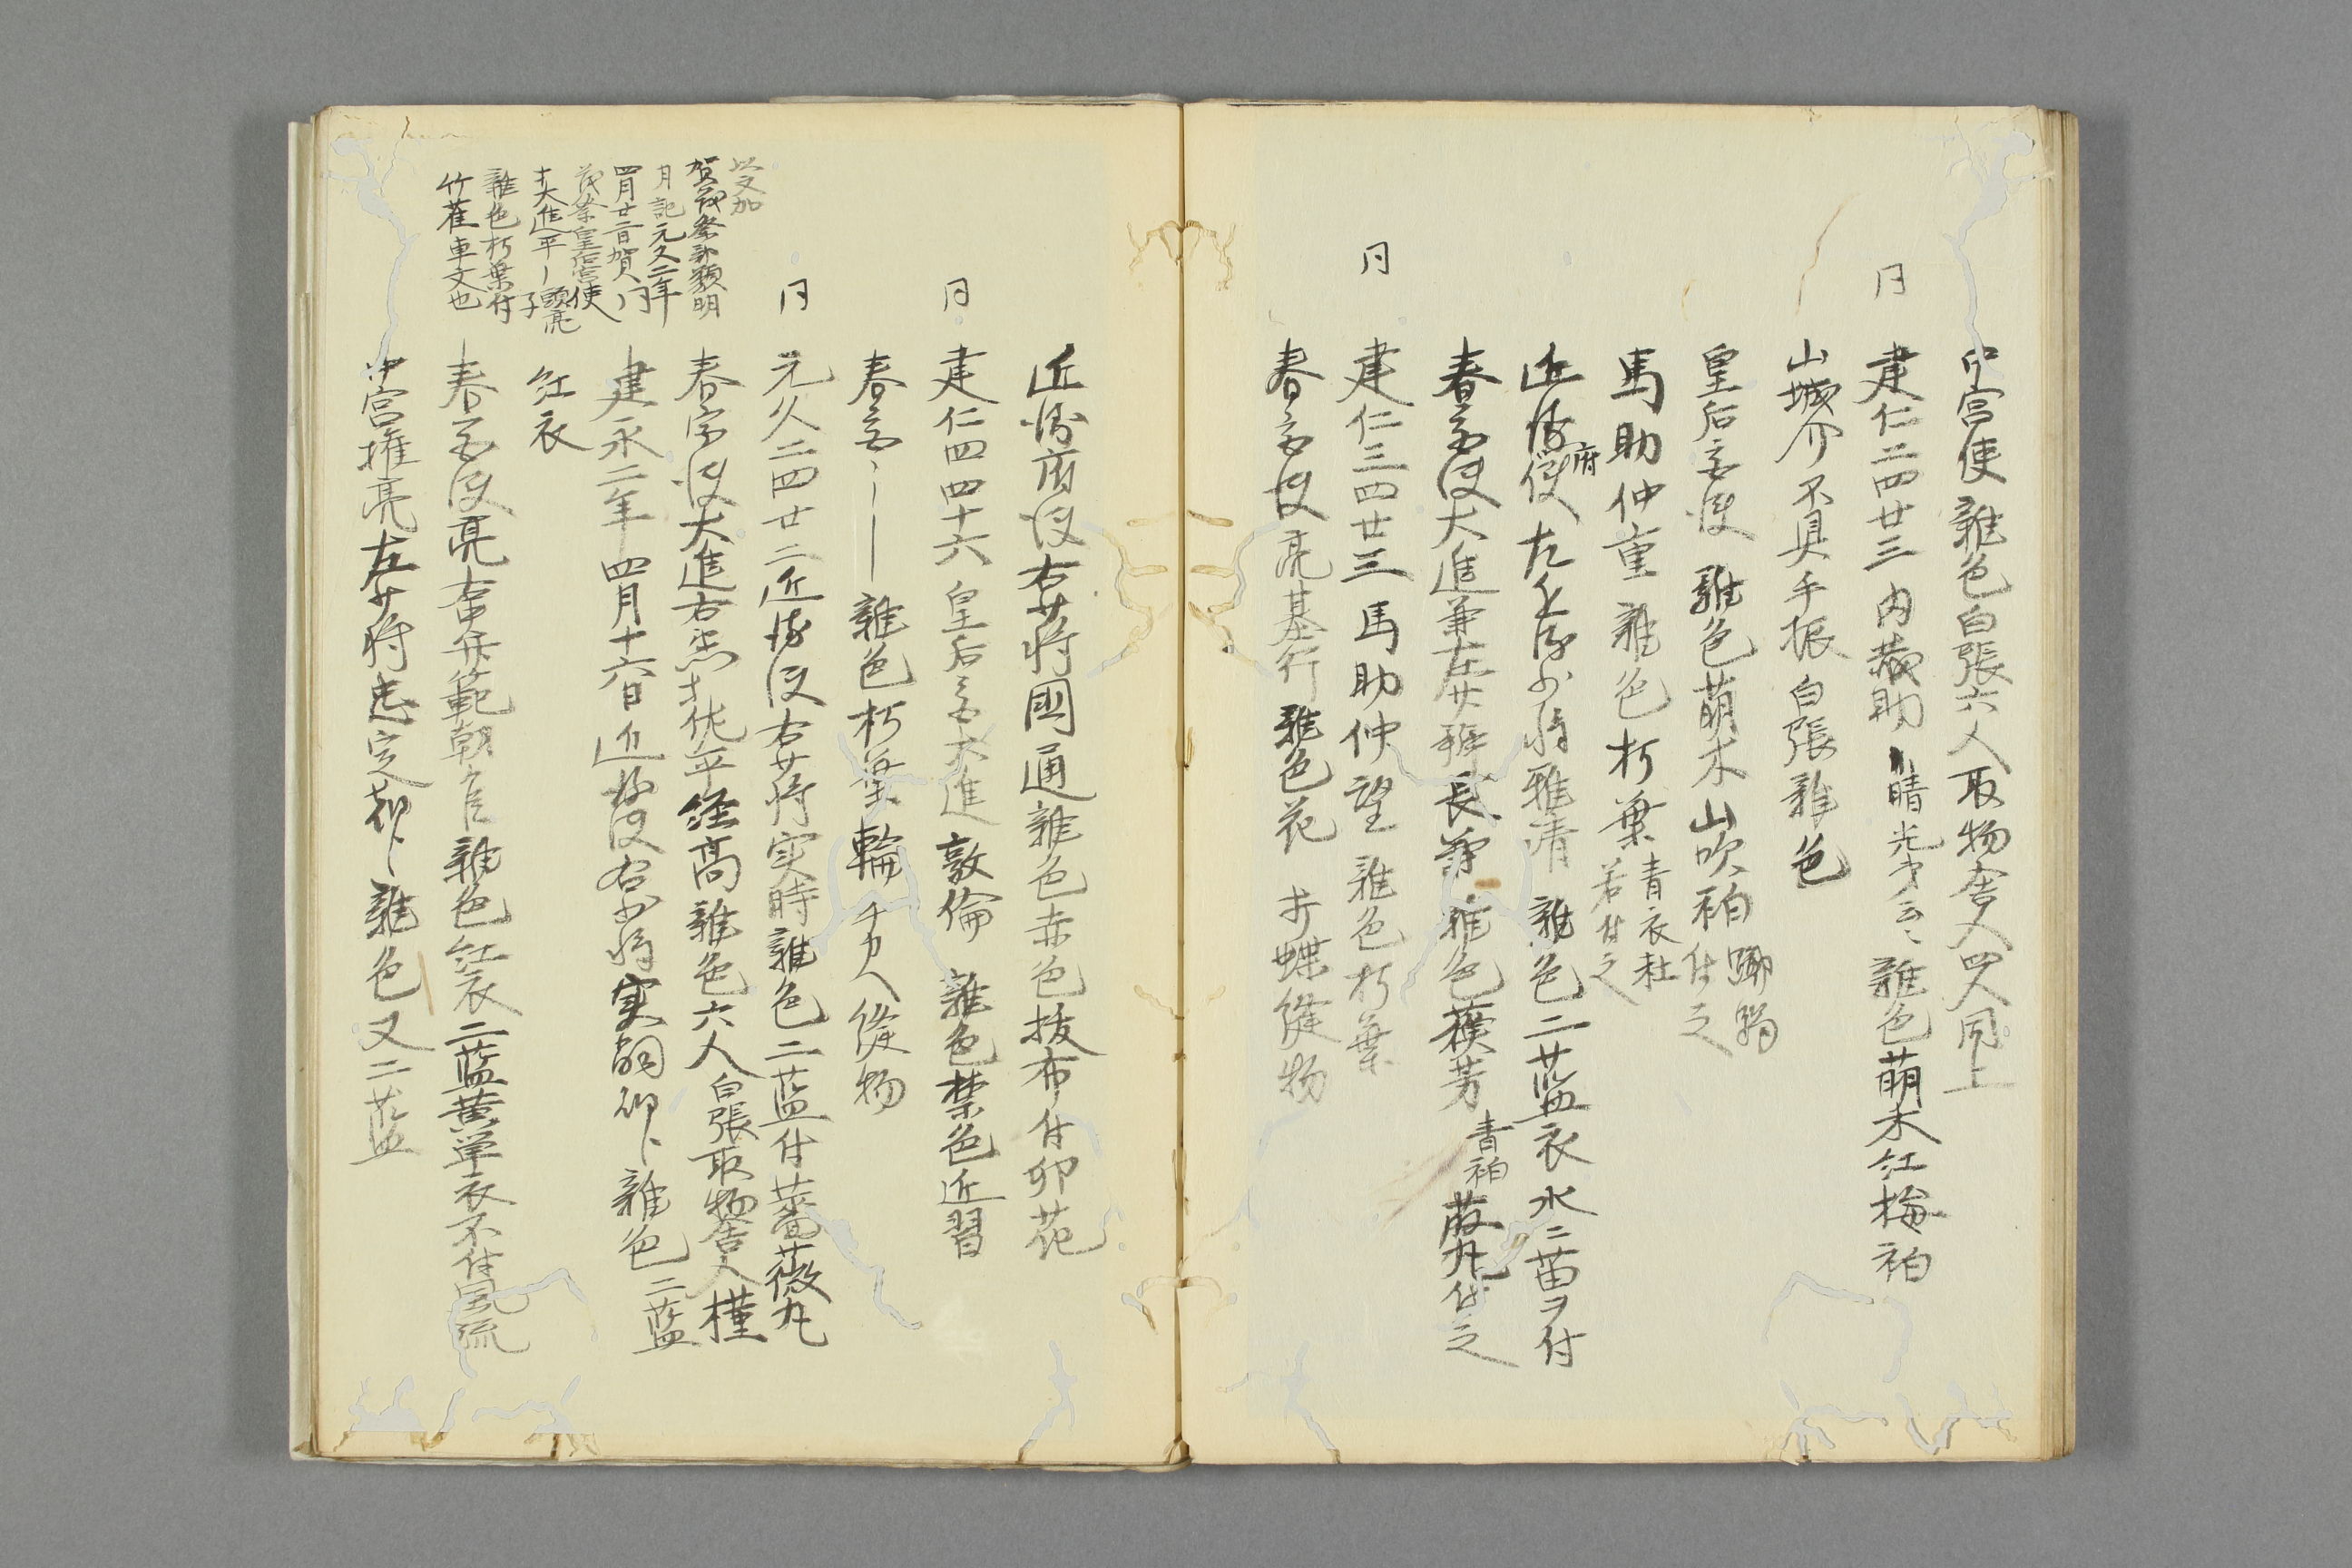 中宮使雑色白張六人取物舎人四人同上
同 建仁二四廿三 内蔵助 晴光 雑色萌木紅梅袙
山城介不具手振白張雑色
皇后宮使 雑色萌木山吹袙 躑躅付之
馬助仲重雑色朽葉 青衣杜若付之
近衛府使左近少将雅清 雑色二藍衣水ニ苗ヲ付
春宮使大進兼左少弁長兼 雑色蘇芳 青袙 藤丸付之
同 建仁三四廿三 馬助仲望 雑色朽葉
春宮使亮基行 雑色花 蝶縫物
近衛府使右少将国通雑色赤色抜布付卯花
同 建仁四四十六 皇后宮大進敦倫 雑色禁色近習
春宮 雑色朽葉輪 縫物
同 元久二四廿二近衛使右少将実時雑色二藍付薔薇丸
春宮使大進右 平経高雑色六人 白張取物舎人 槿
建永二年四月十六日近衛使右少将実嗣 雑色二藍
紅衣
春宮使亮 範朝 雑色紅衣二藍黄単衣不付風流
中宮権亮左少将忠定 雑色又二藍
賀茂祭部類
月記元久二年
四月廿二日賀
茂祭皇后宮使
大進平
雑色朽葉付
竹雀車文也